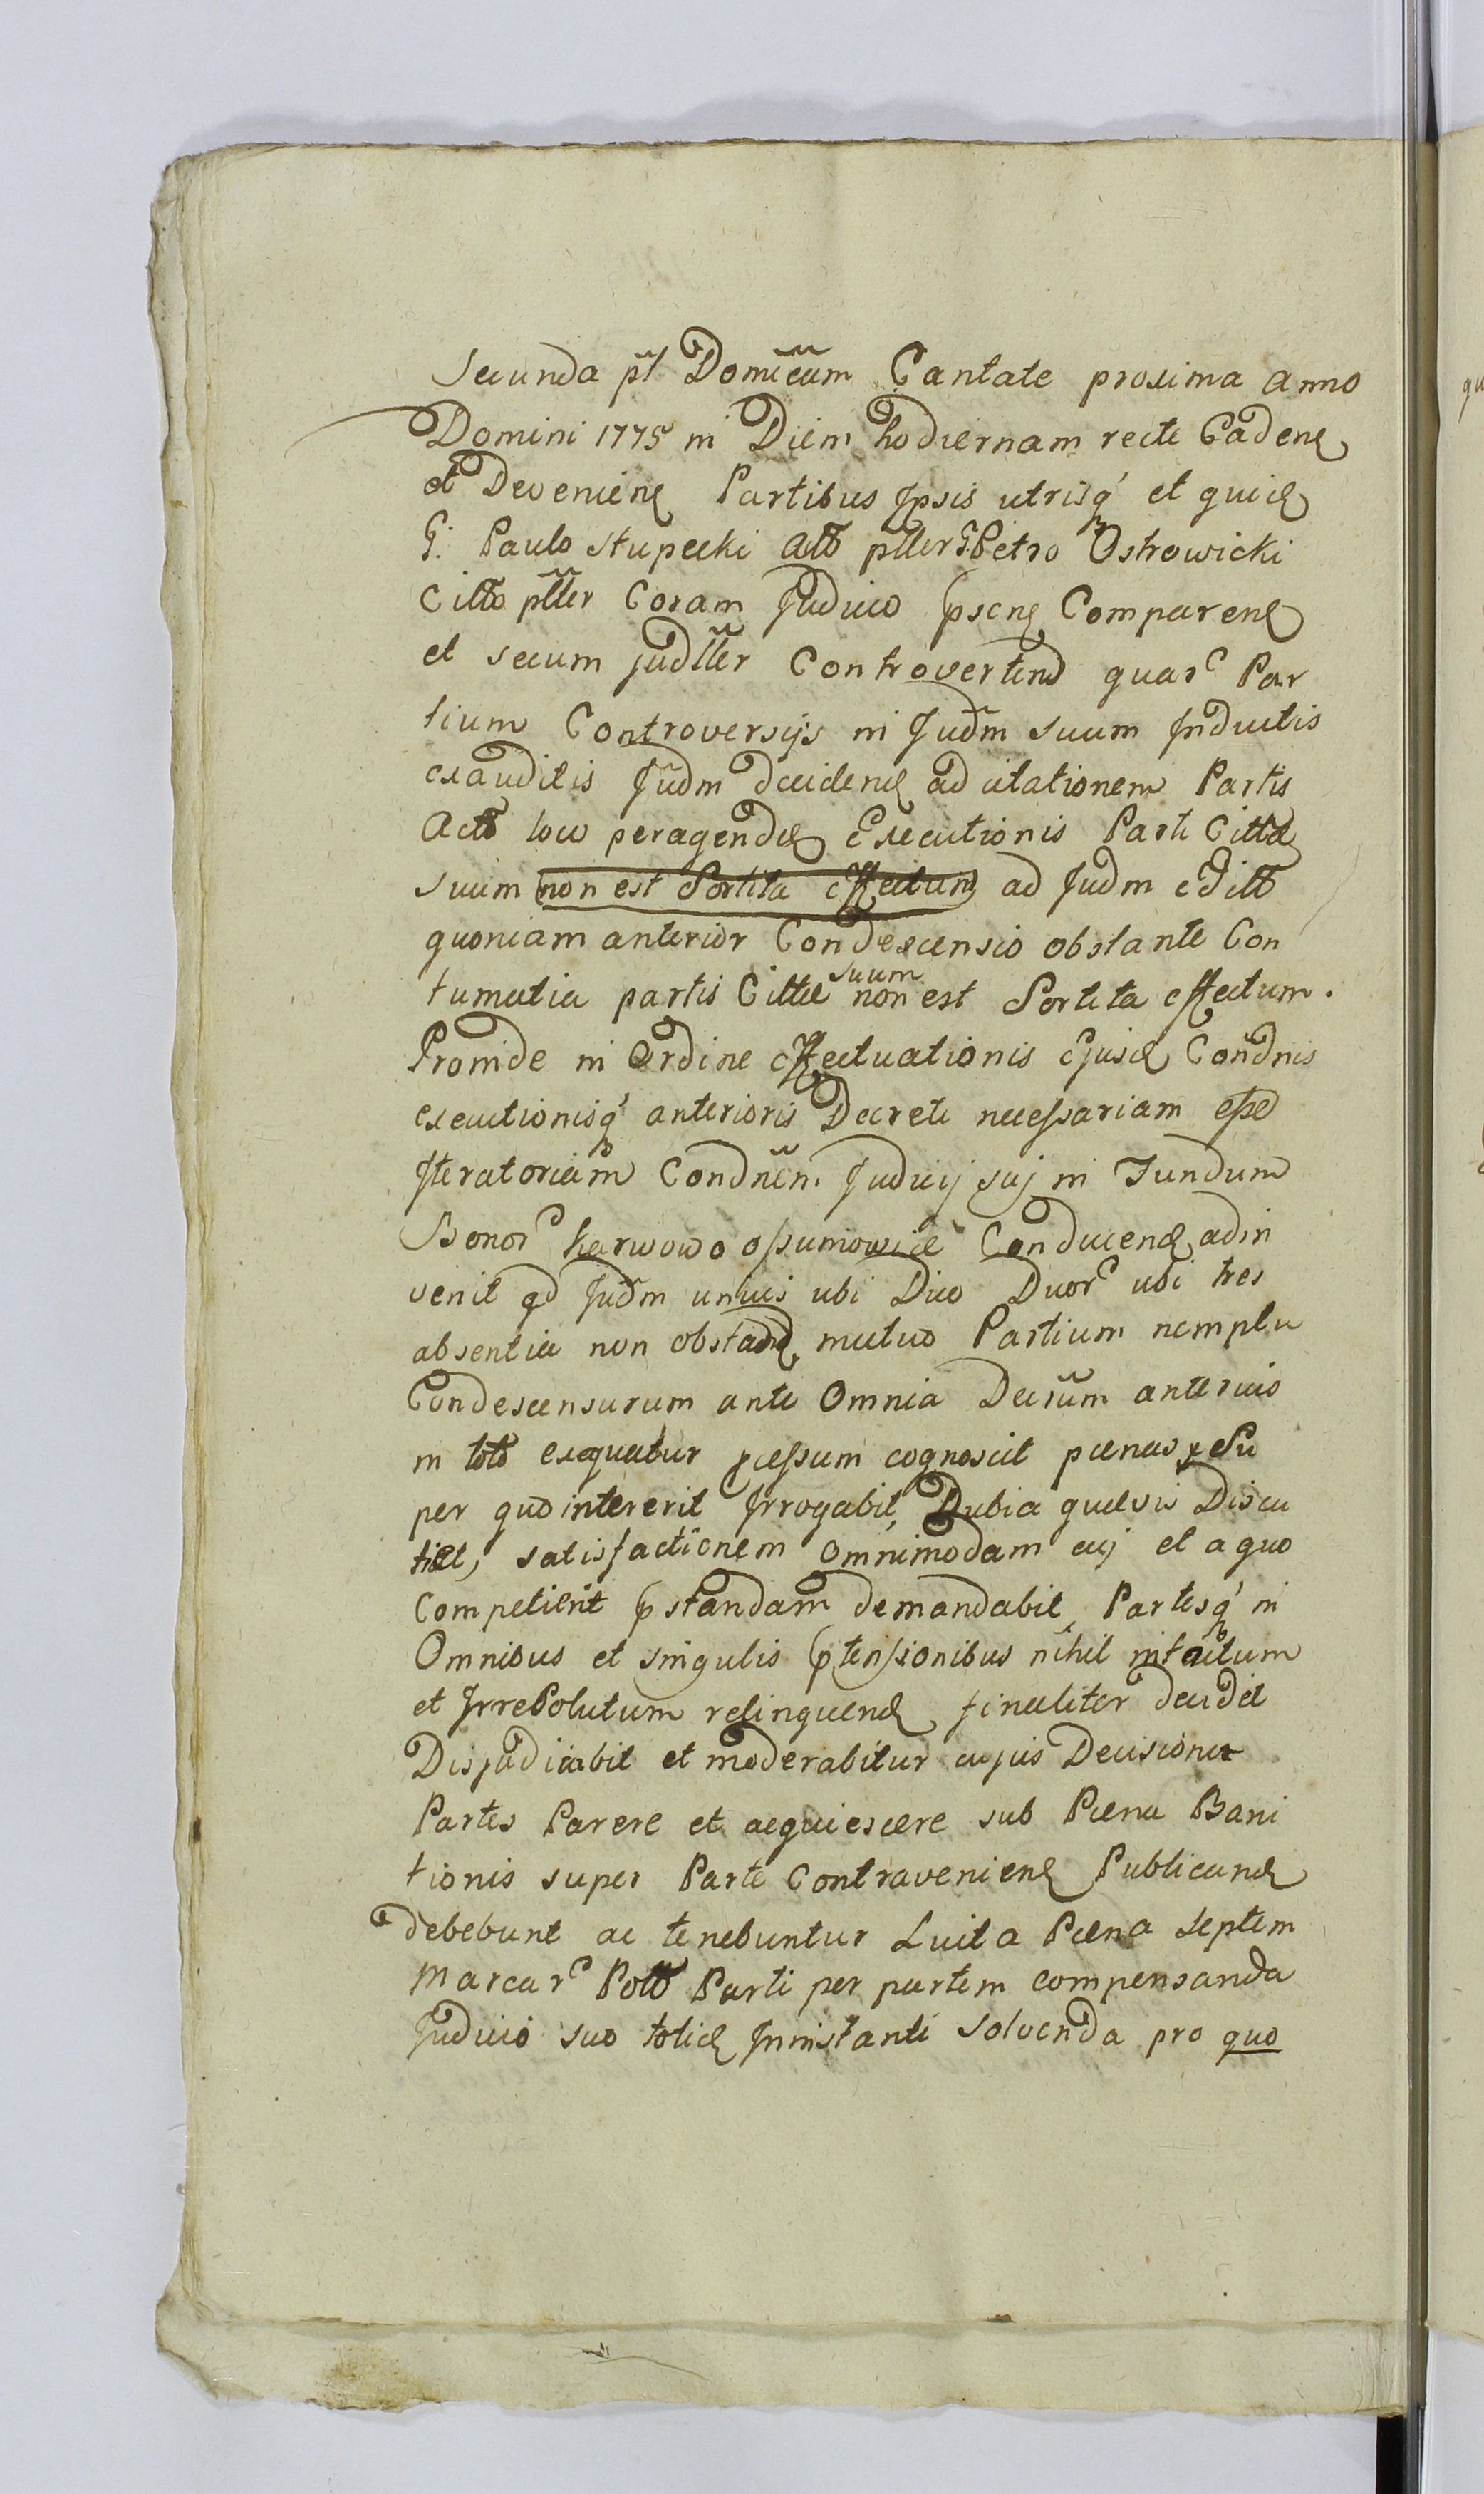 Secunda pt Domicam Cantate proxima Anno
Domini 1775 in Diem hodiernam recte Caden
et Devenien Partibus Ipsis utrisq et quid
G: Paulo Stupecki Actto pltter G Petro Ostrowicki
Citto pltter Coram Judicio psen Comparen
et secum judtter Controverten quar Par
tium Controversijs in Judm suum Inductis
exauditis Judm deciden ad citationem Partis
Acto loco peragendæ Executionis Parti Citta
suum non est Sortita effectum ad Judm editto
quoniam anterior Condescensio obstante Con
tumatia partis Cittæ suum non est Sortita effectum.
Proinde in Ordine effectuationis Ejusd Condnis
executionisq anterioris Decreti necessariam esse
Iteratoriam Condnem Judicij sui in Fundum
Bonor Karwowo Conducend adin
venit qd Judm unius ubi Duo Duor ubi tres
absentia non obstand mutuo Partium
Condescensurum ante Omnia Decrum anterius
in toto exequatur pcessum cognoscet pænas Su
per quo intererit Irrogabit, Dubia quævis Discu
tiet, satisfactionem omnimodam cuj et a quo
Competierit pstandam demandabit, Partesq in
Omnibus et singulis ptensionibus nihil intactum
et Irresolutum relinquend finaliter decidet
Disjudicabit et moderabitur cujus Decisioni
Partes Parere et acquiescere sub Pæna Bani
tionis super Parte Contravenien Publicand
debebunt ac tenebuntur Luita Pæna septem
Marcar Poll Parti per partem compensanda
Judicio suo totid Innistanti solvenda pro quo